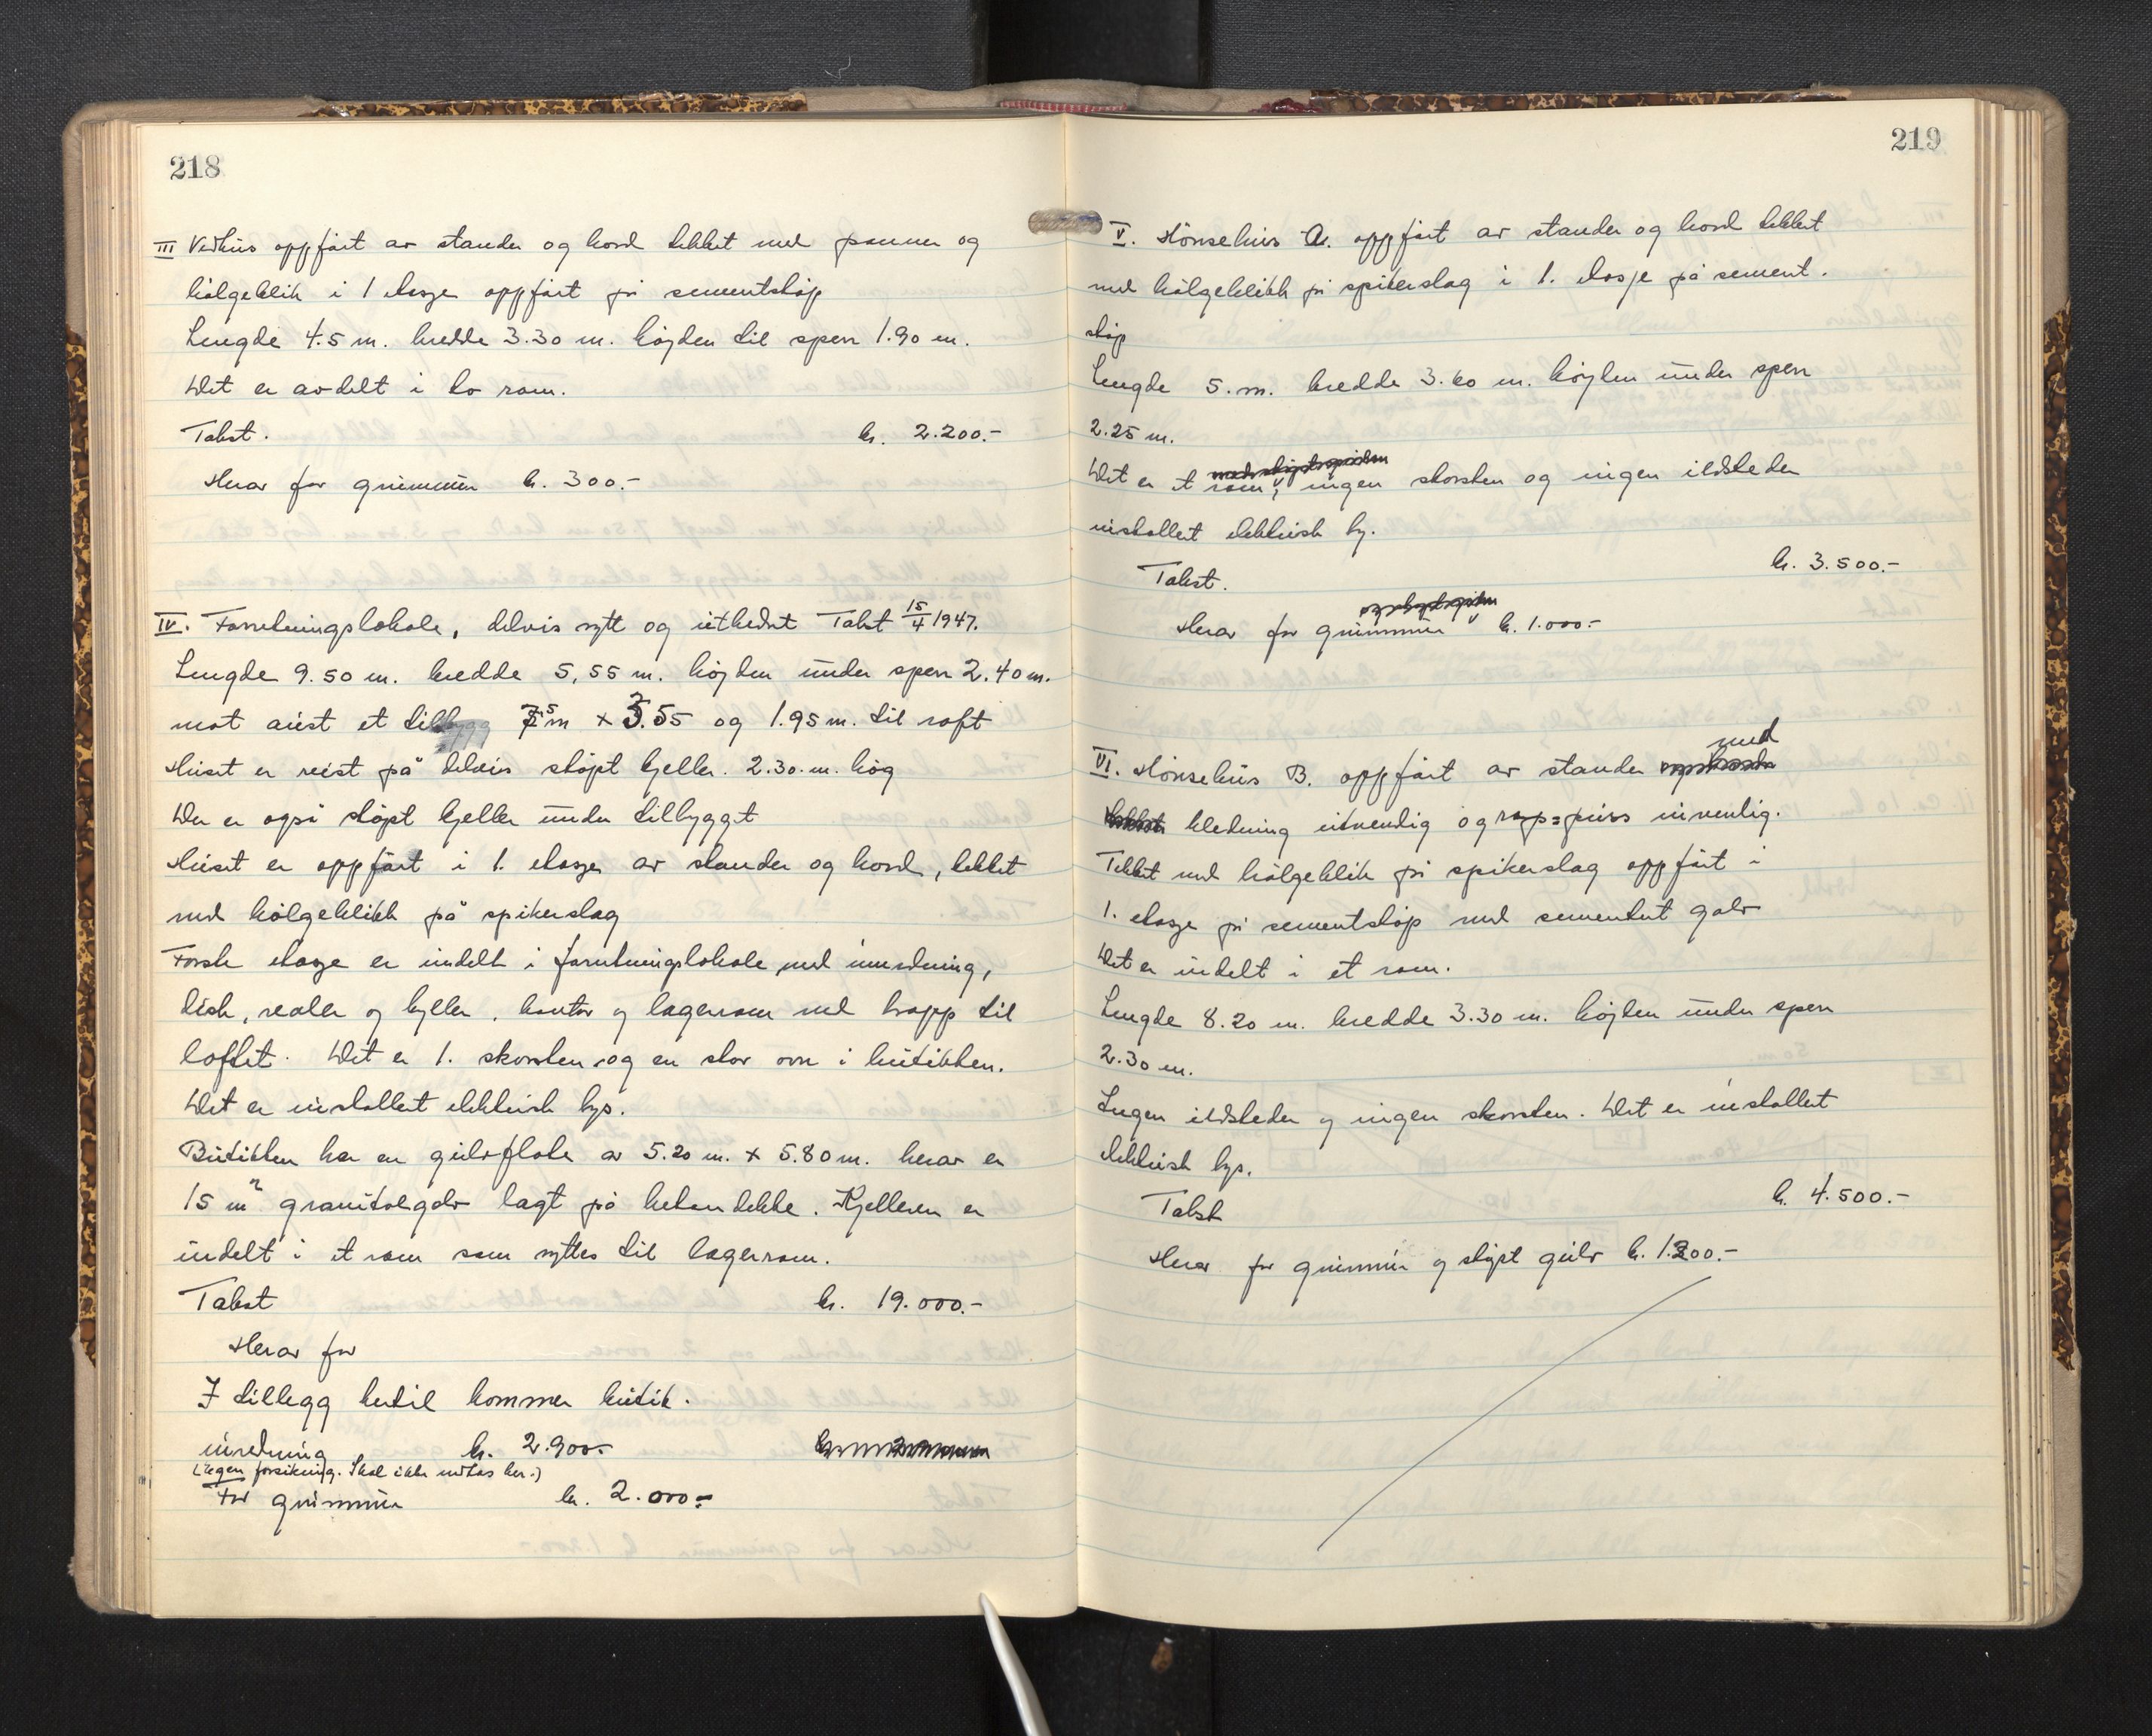 218
III Vedhus oppført av stander og bord tekket med panner og
bølgeblik i 1 etasje oppført på sementstøp
Lengde 4.5 m. bredde 3.30 m. høyden til sperr 1.90 m.
Det er avdelt i to rom.
Takst. kr. 2.200.-
Herav for grunnmur kr. 300.-
IV. Forretningslokale, delvis nytt og utbedret Takst 15/4 1947.
Lengde 9.50 m. bredde 5,55 m. højden under sperr 2.40 m.
mot aust et tilbygg m x 3.55 og 1.95 m. til roft
Huset er reist på delvis støpt kjeller. 2.30. m. høg
Der er også støpt kjeller under tilbygget
Huset er oppført i 1. etasje av stander og bord, tekket
med bølgeblikk på spikerslag
Første etasje er indelt i forretningslokale med innredning,
disk, reoler og hyller, kontor og lagerrom med trapp til
loftet. Det er 1. skorsten og en stor ovn i butikken.
Det er installert elektrisk lys.
Butikken har en gulvflate av 5.20 m. x 5.80 m. herav er
15 m² granitolgolv lagt på betondekke. Kjelleren er
indelt i et rom som nyttes til lagerrom.
Takst kr. 19.000.-
Herav for
I tillegg hertil kommer butik.
inredning kr. 2.900.-
(Ingen forsikring. Skal ikke medtas her.)
For grunnmur kr. 2.000.-
219
V. Hønsehus A. oppført av stander og bord tekket
med bølgeblikk på spikerslag i 1. etasje på sement.
støp
Lengde 5. m. bredde 3.60 m. høyden under sperr
2.25 m.
Det er et rom, ingen skorsten og ingen ildsteder
installert elektrisk ly.
Takst. kr. 3.500.-
Herav for grunnmur kr. 1.000.-
med
VI. Hønsehus B. oppført av stander
kledning utvendig og rapp=puss invenlig.
Tekket med bølgeblik på spikerslag oppført i
1. etasje på sementstøp med sementert golv
Det er indelt i et rom.
Lengde 8.20 m. bredde 3.30 m. højden under sperr
2.30 m.
Ingen ildsteder og ingen skorsten. Det er installert
elektrisk lys.
Takst kr. 4.500.-
Herav for grunnmur og støpt gulv kr. 1.200.-